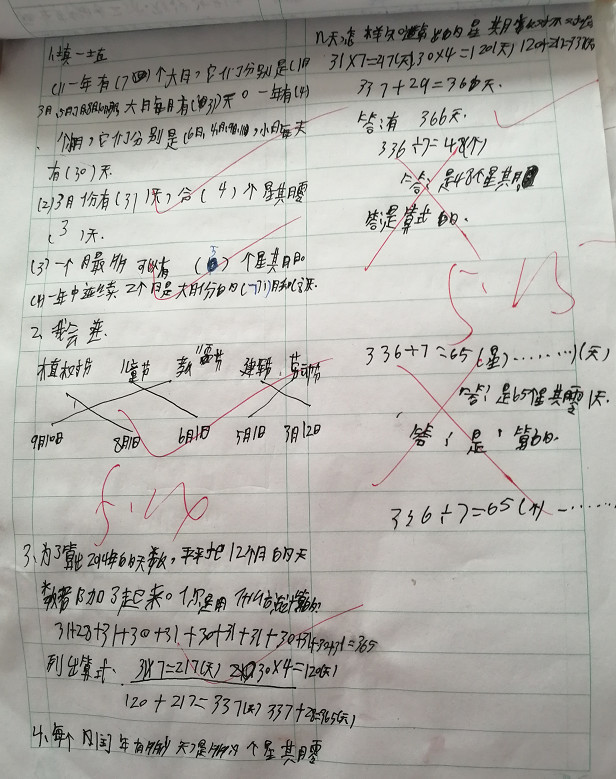 1.填一填
(1)一年有(7)个大月,它们分别是(1月
3月,5月,7月8月10月12月)大月每月有(31)天。一年有(4)
个小月,它们分别是(6月,4月,9月,11月),小月每天
有(30)天.
(2)3月份有(31)天,合(4)个星其月零
(3)天.
(3)一个月最多可以有(5)个星其月日。
(4)一年中连续2个月是大月份的(7)月和(8)月.
2、我会连.
植树节 儿童节 教师节 建军节 劳动节
9月10日 8月1日 6月1日 5月1日 3月12日
3、为了算出2014年的天数,平平把12个月的天
数都加了起来。你是用什么方法计算的
31+28+31+30+31+30+31+31+30+31+30+31=365
列出算式、31×7=217(天) 30×4=120(天)
120+217=337(天) 337+28=365(天)
4、每个闰年有多少天?是多少个星其月零
31×7=217(天),30×4=120(天)
337+29=366天.
答:有 366天.
336÷7=48(个)
答:是48个星其月
答:是算式的.
336÷7=65(星)………1(天)
答:是65个星其零1天.
答:是,算的.
336÷7=65(个)………